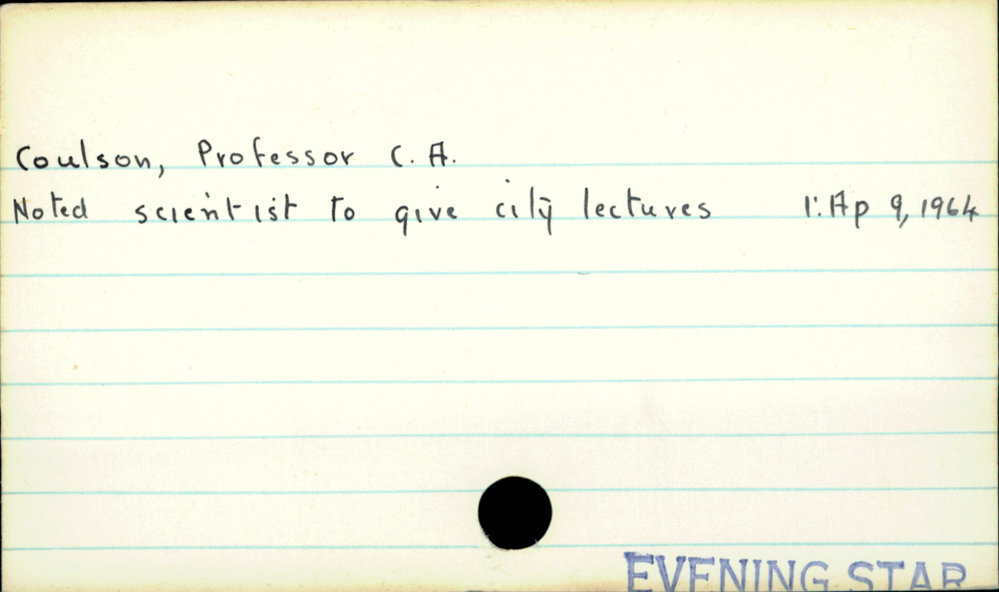 Coulson, Professor C. A.
Noted scientist to give city lectures 1: Ap 9, 1964
EVENING STAR